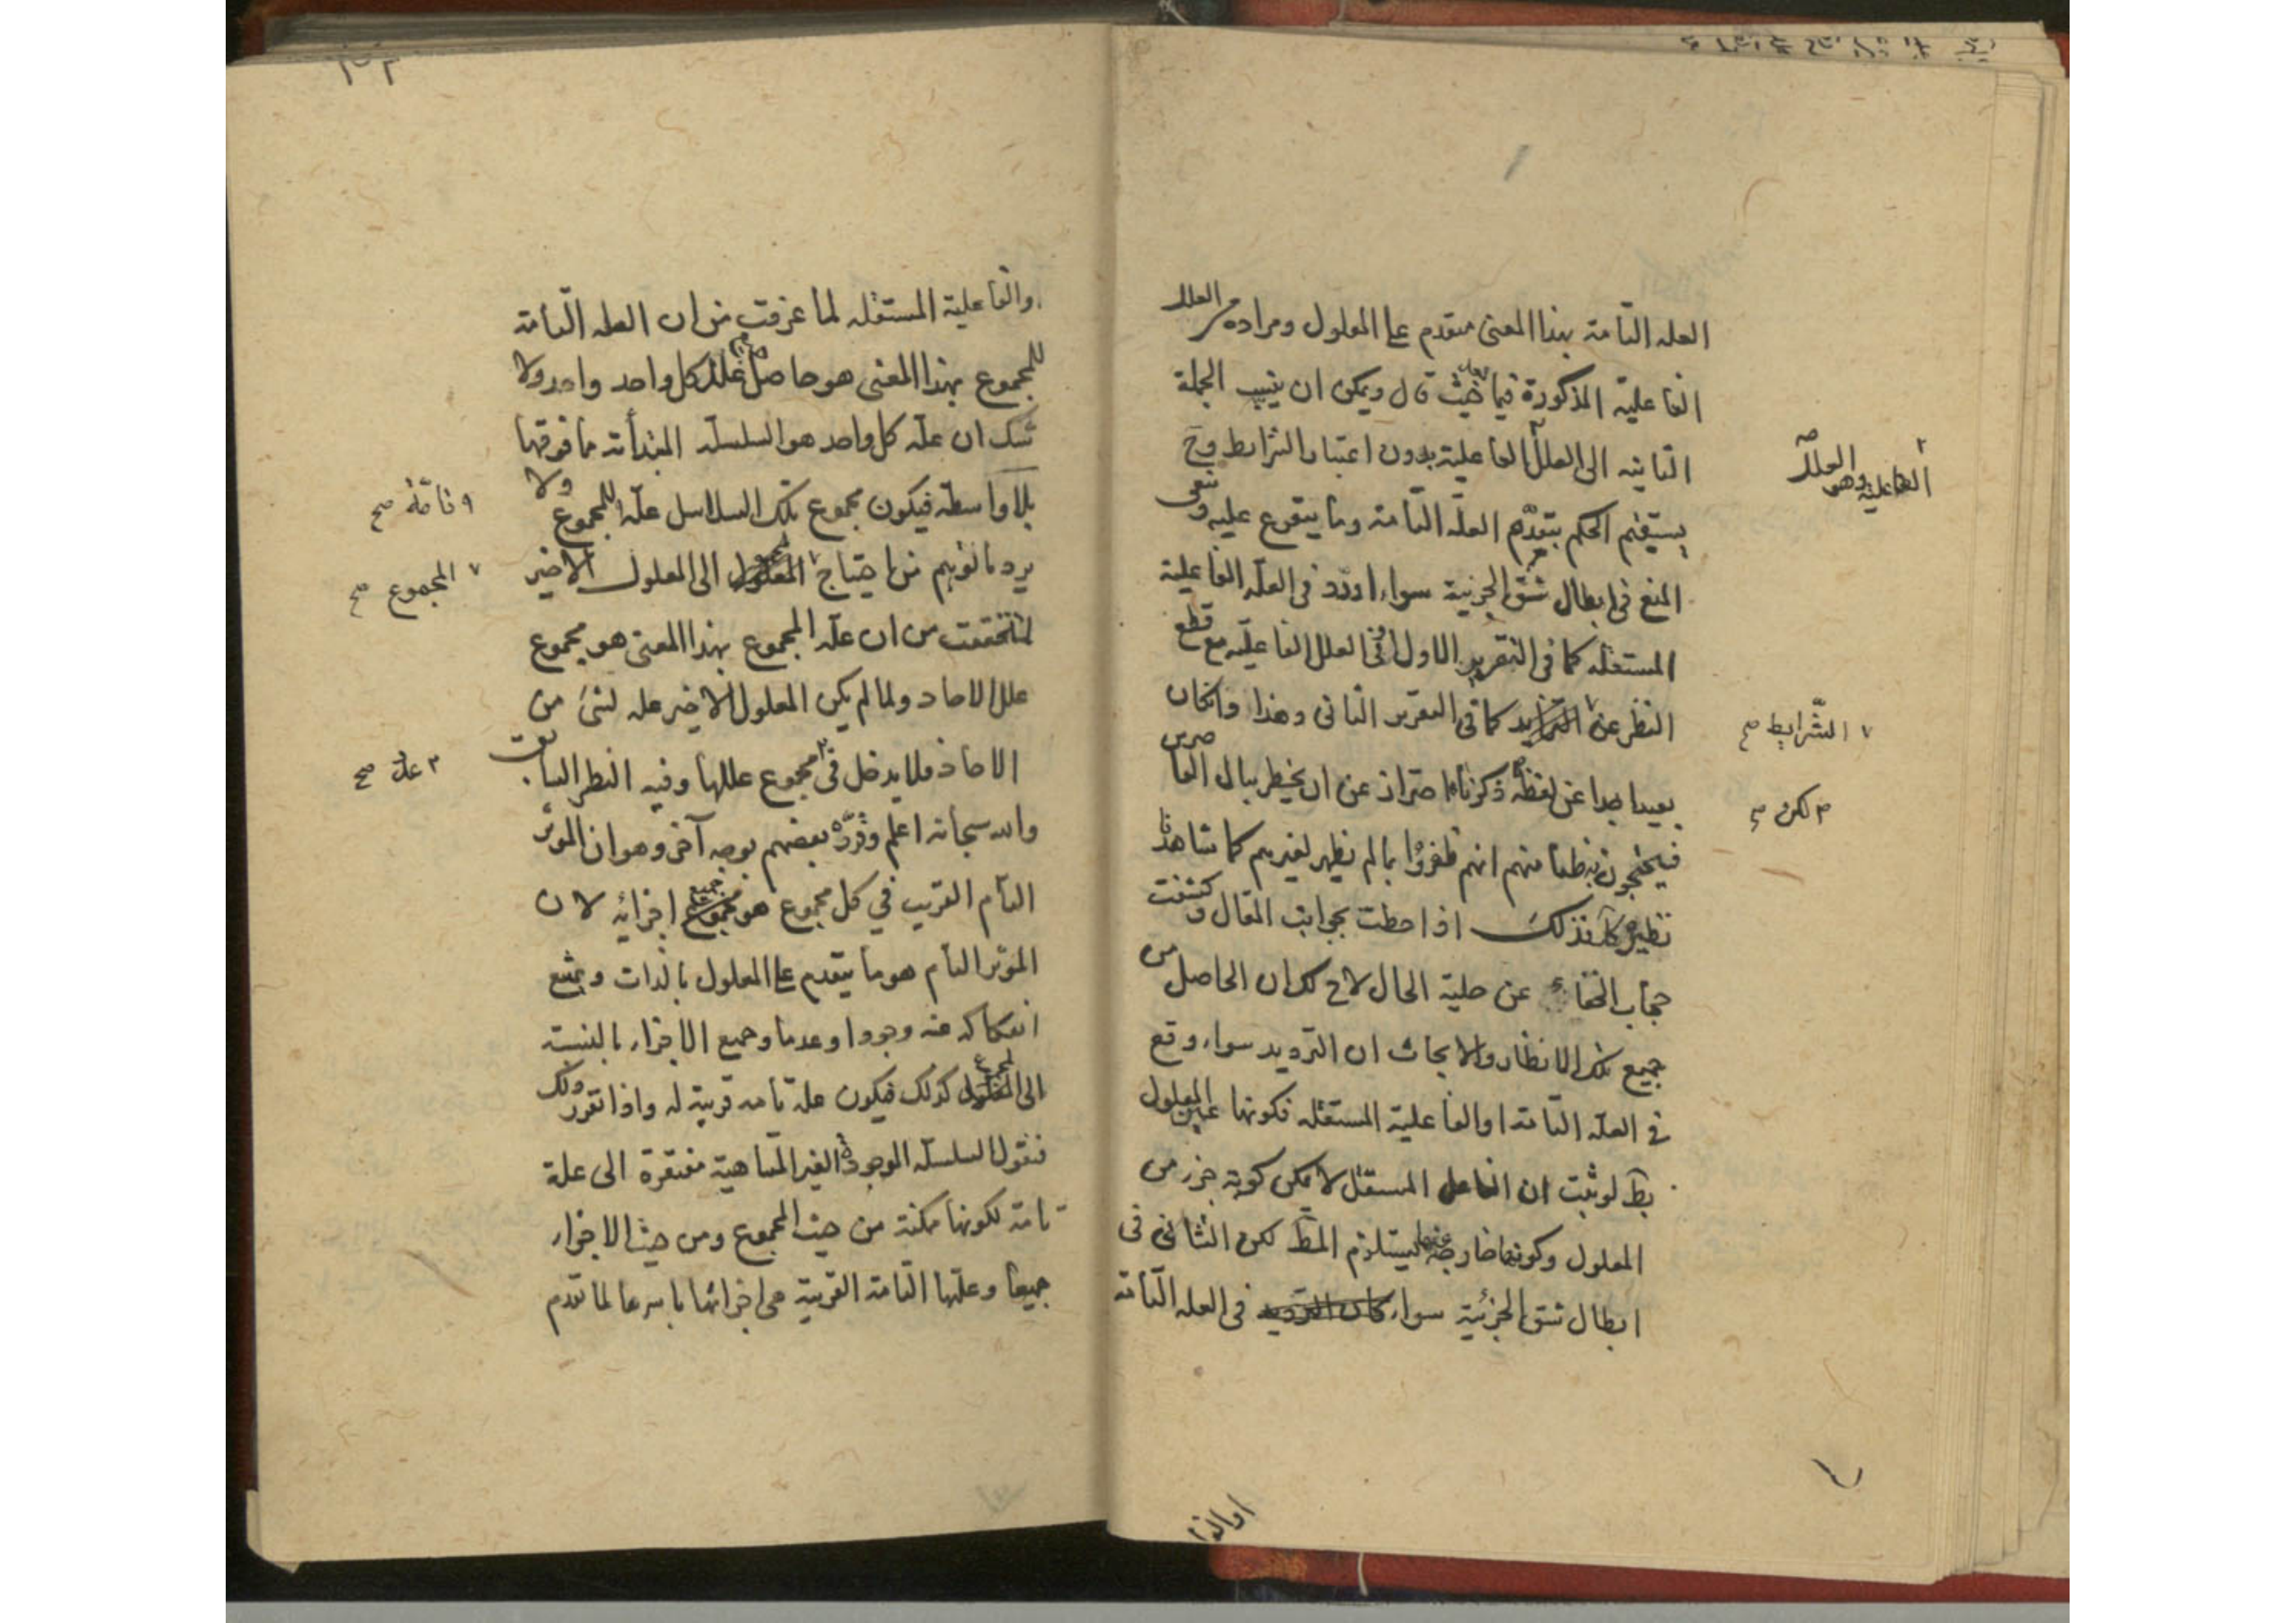 العله التامة بهذا المعنى متقدم على المعلول ومراده من العلل
الفاعلية المذكورة فيما حيث قال ويمكن ان ينسب الجملة
الثانيه الى العلل الفاعلية بدون اعتبار الشرايط وح
يستقيم الحكم بتقدم العلة التامة وما يتفرع عليه وتبقى
المنع فى ابطال شق الجزئية سواء اورد فى العله الفاعلية
المستقله كما فى التقرير الاول او فى العلل الفاعليه مع قطع
النظر عن كما فى التقرير الثانى وهذا وان كان
بعيدا جدا عن لفظه ذكرناه احترازا عن ان يخطر ببال القاصرين
منهم انهم ظفروا بما لم يظهر لغيرهم كما شاهدنا
نظيره اذا احطت بجوانب المقال وكشفت
حجاب الخفاء عن حلية الحال لاح لك ان الحاصل من
جميع تلك الانظار والابحاث ان الترديد سواء وقع
فى العله التامة او الفاعلية المستقله فكونها عين المعلول
بط لو ثبت ان الفاعل المستقل لا يمكن كونه جزء من
المعلول وكونها خارجة عنها يستلزم المط لكن الشان فى
ابطال شق الجزئية سواء كان الترديد فى العله التامة
او الفا
العلل
الفاعلية وهو
الشرايط صح
لكن صح
والفاعلية المستقله لما عرفت من ان العله التامة
للمجموع بهذا المعنى هو حاصل علل كل واحد واحد ولا
شك ان علة كل واحد هو السلسلة المبتدأة مما فوقها
بلا واسطه فيكون مجموع تلك السلاسل علة للمجموع ولا
يرد ما توهم من احتياج الى المعلول الاخير
لما تحققت من ان علة المجموع بهذا المعنى هو مجموع
علل الاحاد ولما لم يكن المعلول الاخير عله لشئ من
الاحاد فلا يدخل فى مجموع عللها وفيه النظر السابق
والله سبحانه اعلم وقرره بعضهم بوجه آخر وهو ان المؤثر
التام القريب في كل مجموع هو جميع اجزائه لان
المؤثر التام هو ما يتقدم على المعلول بالذات ويمتنع
انفكاكه عنه وجودا وعدما وجميع الاجزاء بالنسبة
الى المجموع كذلك فيكون علة تامه قريبة له واذا تقرر ذلك
فنقول السلسلة الموجودة الغير المتناهية مفتقرة الى علة
تامة لكونها ممكنة من حيث المجموع ومن حيث الاجزاء
جميعا وعلتها التامة القريبة هى اجزائها باسرها لما تقدم
تامة صح
المجموع صح
علل صح